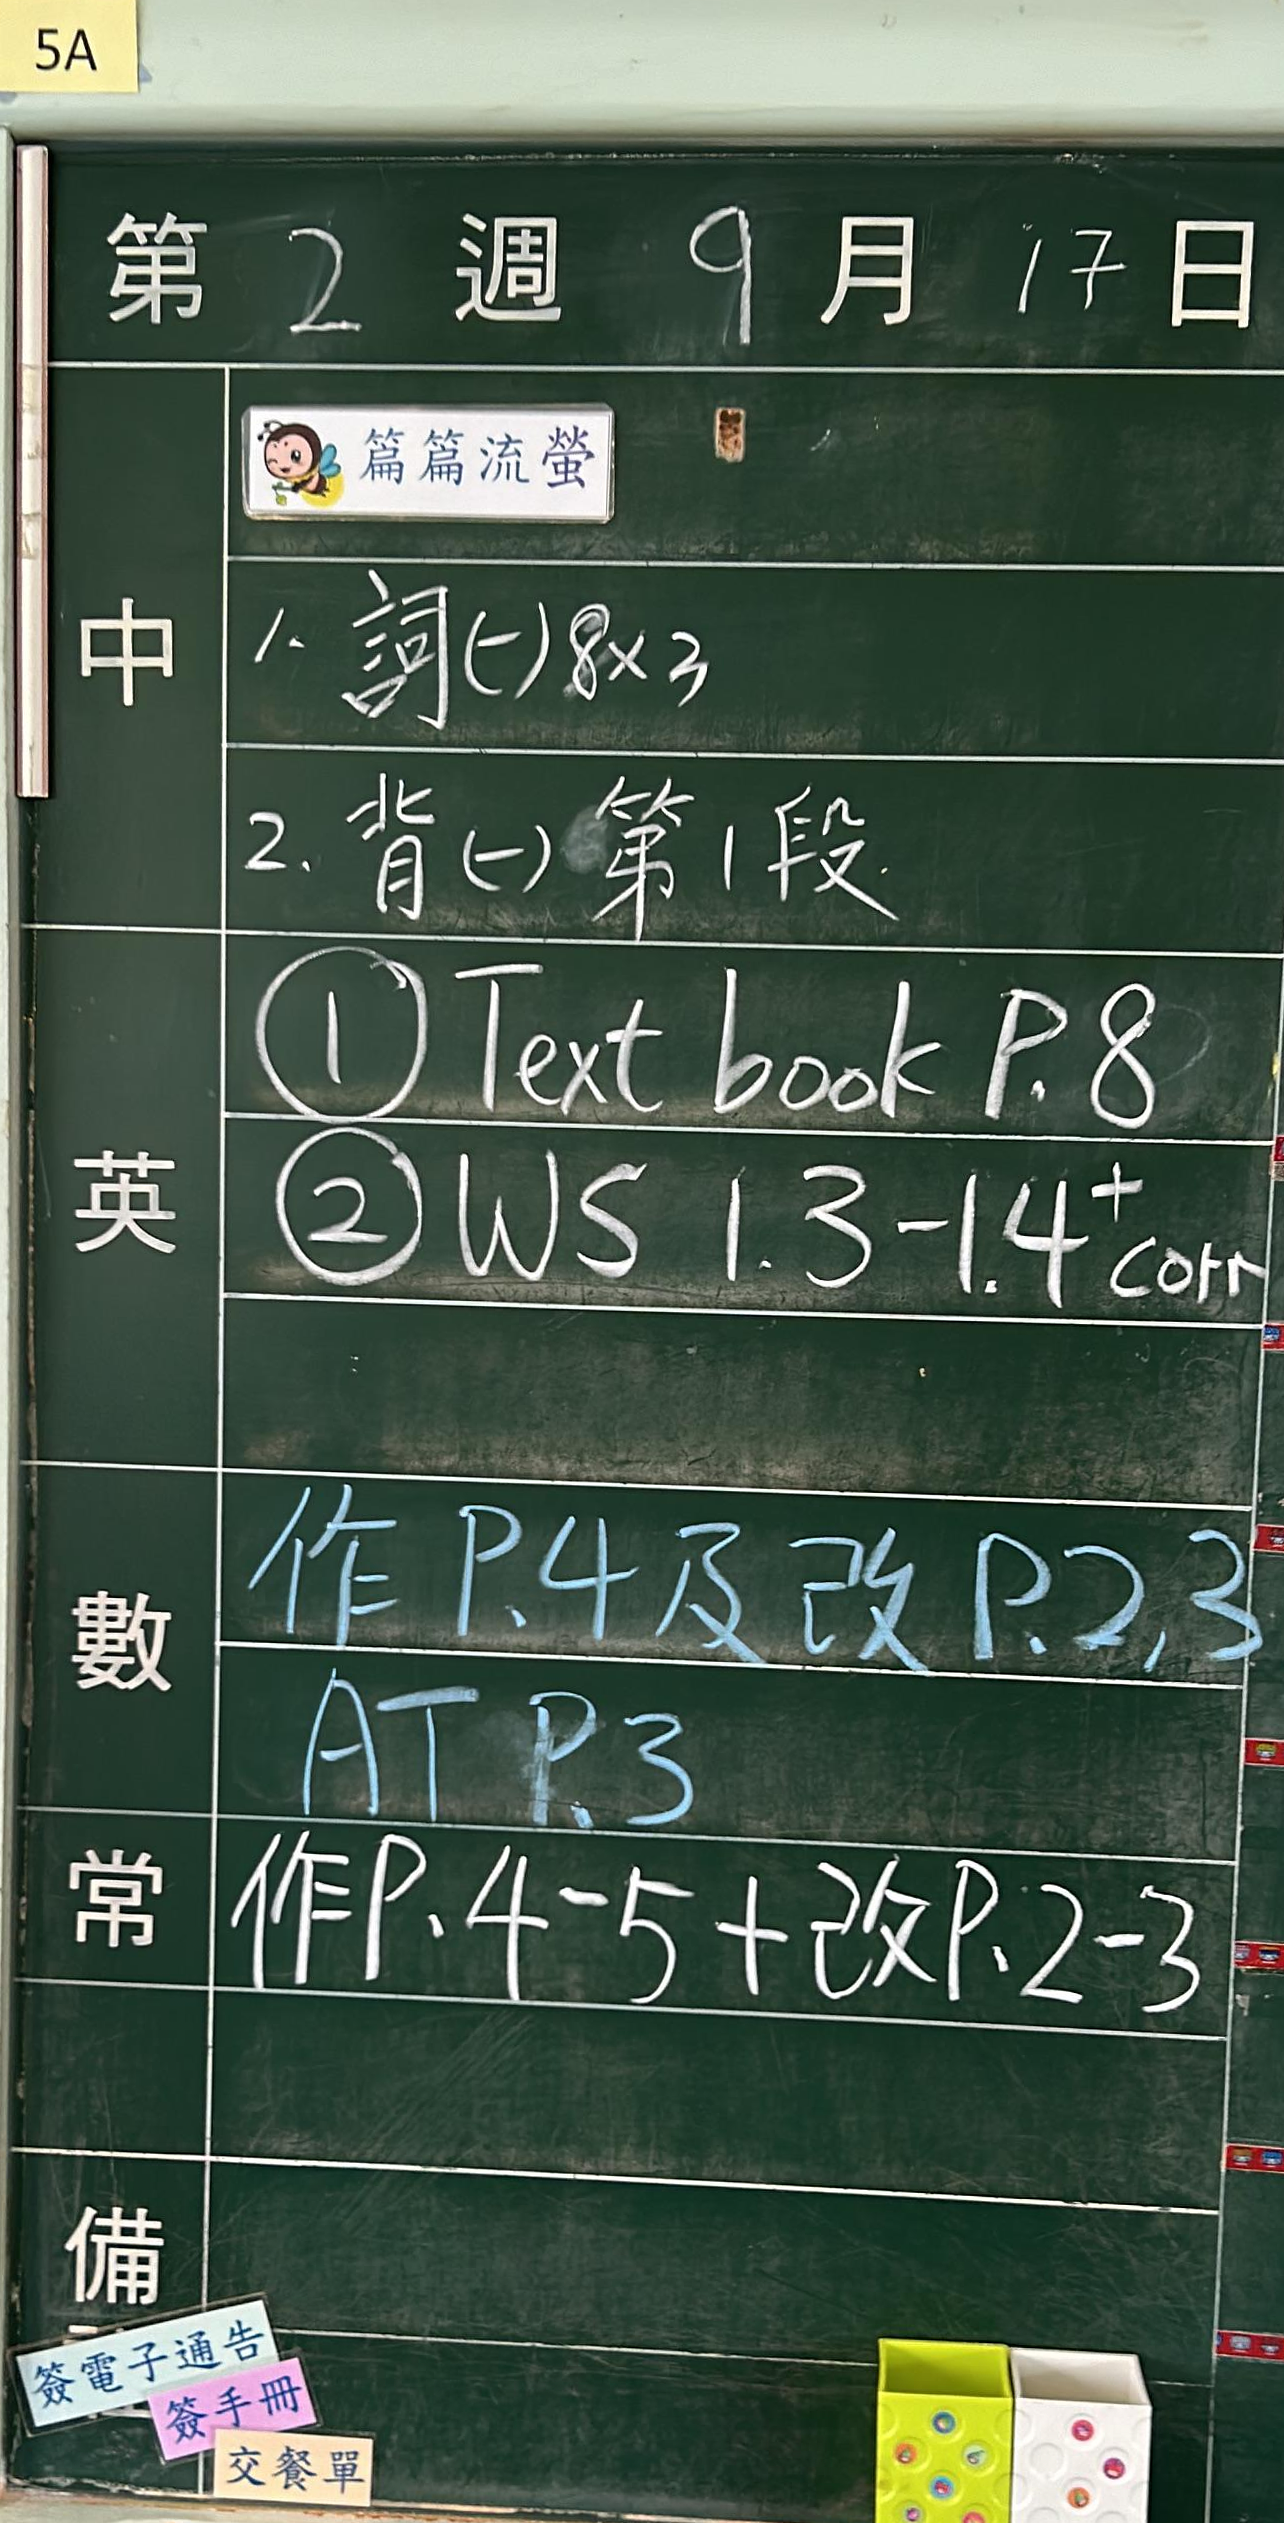 5A
第 2 週 9 月 17 日
篇篇流螢
中
1. 詞(一)8x3
2. 背(一)第1段
英
① Text book P.8
② WS 1.3-1.4+corr
數
作 P.4及改 P.2,3
AT P.3
常
作P.4-5+改P.2-3
備
簽電子通告
簽手冊
交餐單